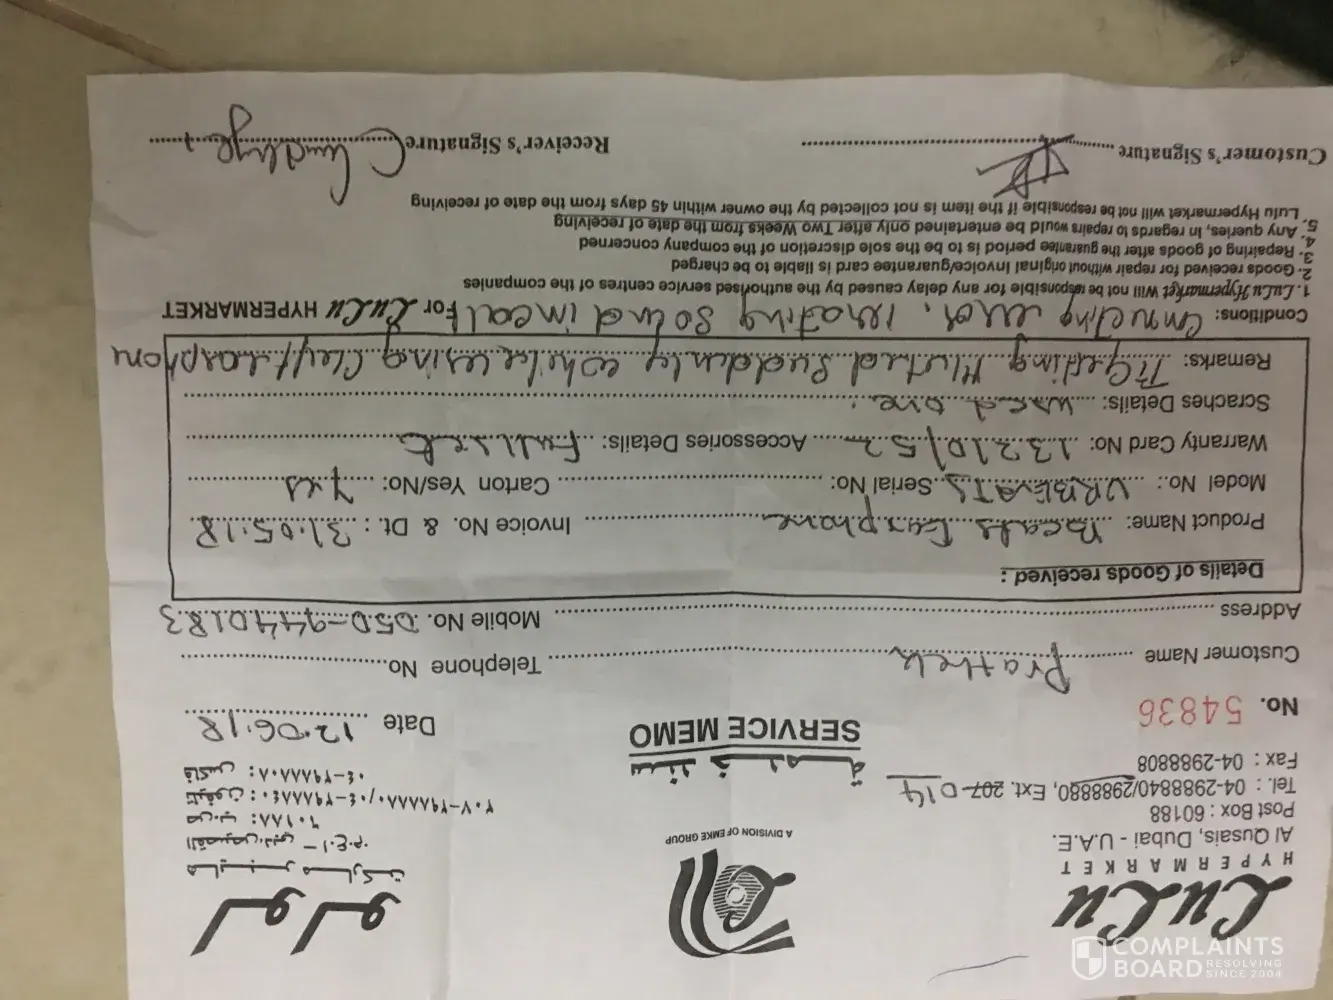 LuLu
HYPERMARKET
Al Qusais, Dubai - U.A.E.
Post Box : 60188
Tel. : 04-2988840/2988880, Ext. 207 014
Fax : 04-2988808
A DIVISION OF EMKE GROUP
سند خدمة
SERVICE MEMO
لولو
هايبر ماركت
القصيص، دبي - ا.ع.م.
ص.ب: ٦٠١٨٨
تليفون: ٠٤-٢٩٨٨٨٤٠/٢٩٨٨٨٨٠-٢٠٧
فاكس: ٠٤-٢٩٨٨٨٠٨
No. 54836
Date 12.06.18
Customer Name Telephone No.
Address Mobile No. 050-9440183
Details of Goods received :
Product Name: Beats Earphone Invoice No. & Dt. : 31.05.18
Model No.: URBEATS Serial No: Carton Yes/No: Yes
Warranty Card No: 13210/52 Accessories Details: Full set
Scraches Details: used one.
Remarks: Getting Muted Suddenly while using Left Earphone
Conneting error, sound imcall
Conditions: For LuLu HYPERMARKET
1. LuLu Hypermarket Will not be responsible for any delay caused by the authorised service centres of the companies
2. Goods received for repair without original invoice/guarantee card is liable to be charged
3. Repairing of goods after the guarantee period is to be the sole discretion of the company concerned
4. Any queries, in regards to repairs would be entertained only after Two Weeks from the date of receiving
5. Lulu Hypermarket will not be responsible if the item is not collected by the owner within 45 days from the date of receiving
Customer's Signature Receiver's Signature
COMPLAINTS
BOARD RESOLVING
SINCE 2004